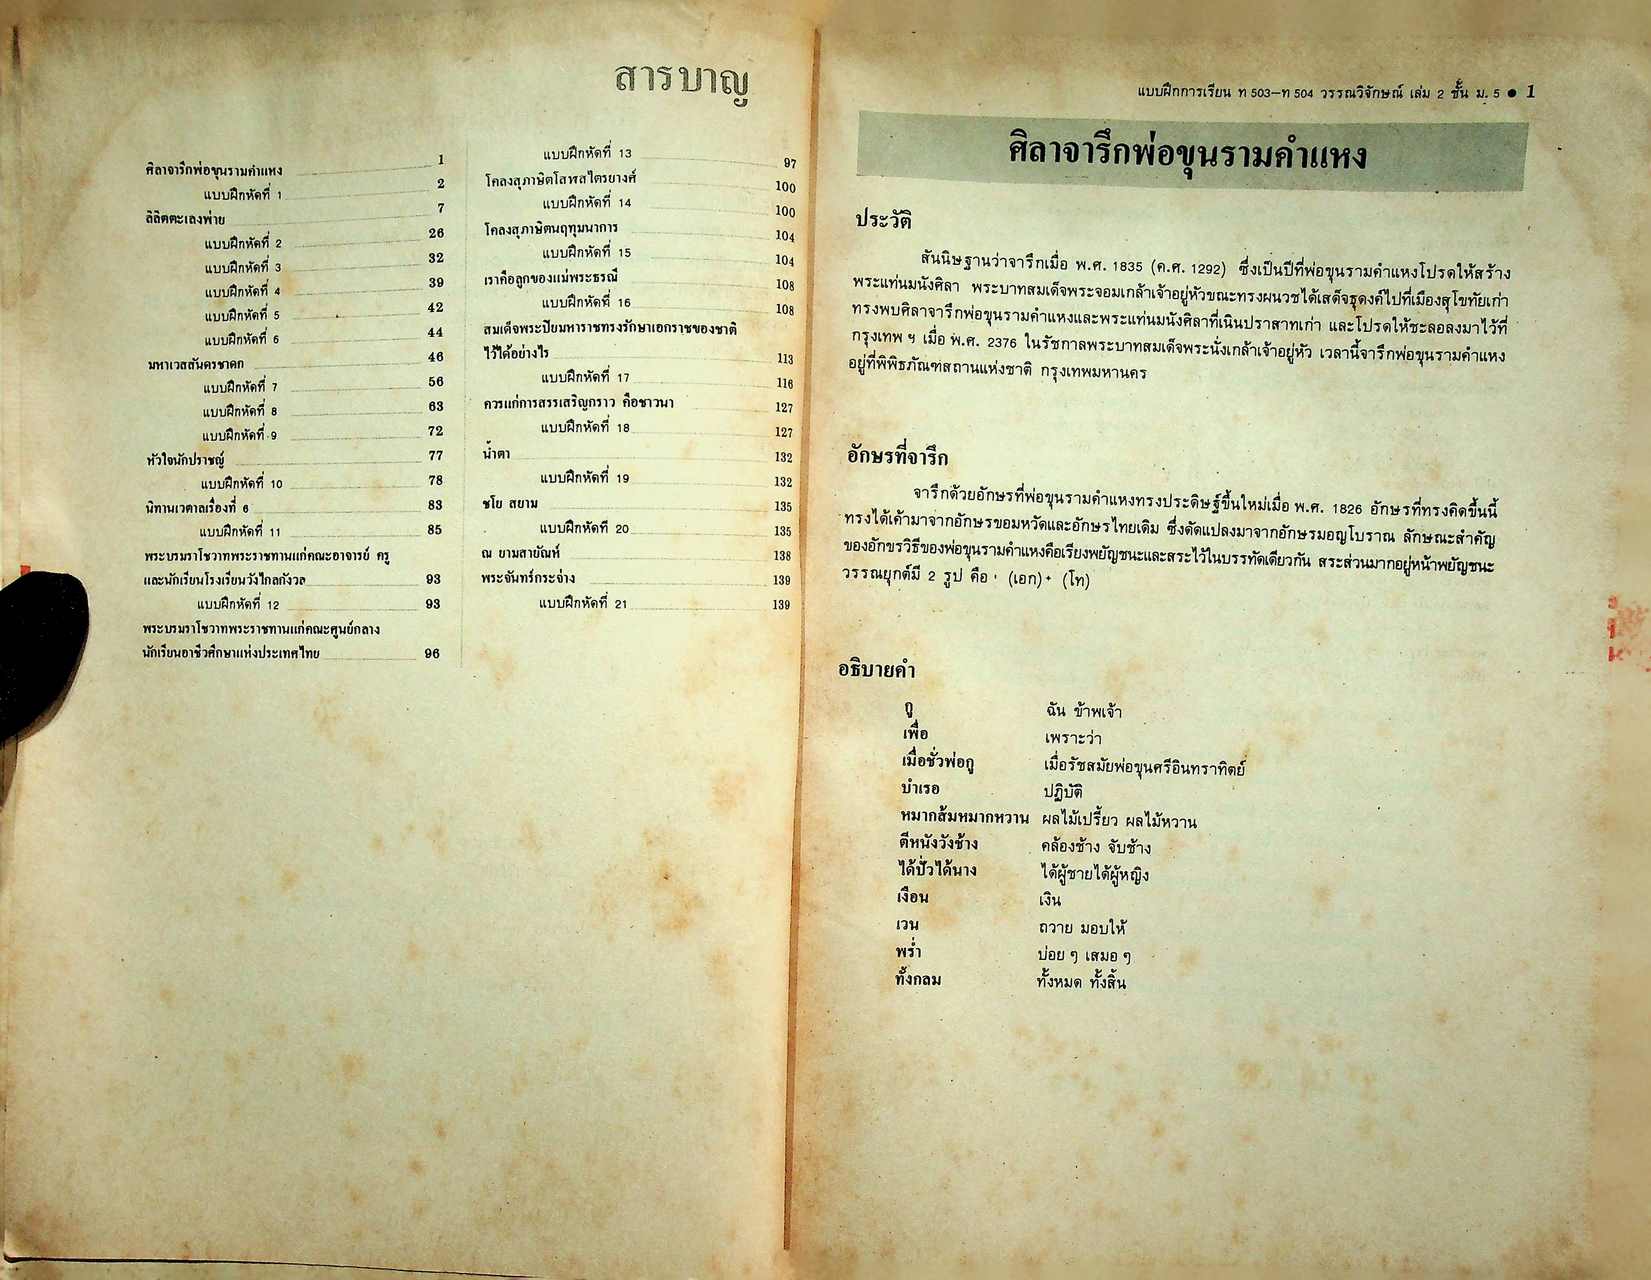 สารบาญ
ศิลาจารึกพ่อขุนรามคำแหง 1
แบบฝึกหัดที่ 1 2
ลิลิตตะเลงพ่าย 7
แบบฝึกหัดที่ 2 26
แบบฝึกหัดที่ 3 32
แบบฝึกหัดที่ 4 39
แบบฝึกหัดที่ 5 42
แบบฝึกหัดที่ 6 44
มหาเวสสันดรชาดก 46
แบบฝึกหัดที่ 7 56
แบบฝึกหัดที่ 8 63
แบบฝึกหัดที่ 9 72
หัวใจนักปราชญ์ 77
แบบฝึกหัดที่ 10 78
นิทานเวตาลเรื่องที่ 6 83
แบบฝึกหัดที่ 11 85
พระบรมราโชวาทพระราชทานแก่คณะอาจารย์ ครู
และนักเรียนโรงเรียนวังไกลกังวล 93
แบบฝึกหัดที่ 12 93
พระบรมราโชวาทพระราชทานแก่คณะศูนย์กลาง
นักเรียนอาชีวศึกษาแห่งประเทศไทย 96
แบบฝึกหัดที่ 13 97
โคลงสุภาษิตโสฬสไตรยางค์ 100
แบบฝึกหัดที่ 14 100
โคลงสุภาษิตนฤทุมนาการ 104
แบบฝึกหัดที่ 15 104
เราคือลูกของแม่พระธรณี 108
แบบฝึกหัดที่ 16 108
สมเด็จพระปิยมหาราชทรงรักษาเอกราชของชาติ
ไว้ได้อย่างไร 113
แบบฝึกหัดที่ 17 116
ควรแก่การสรรเสริญกราว คือชาวนา 127
แบบฝึกหัดที่ 18 127
น้ำตา 132
แบบฝึกหัดที่ 19 132
ชโย สยาม 135
แบบฝึกหัดที่ 20 135
ณ ยามสายัณห์ 138
พระจันทร์กระจ่าง 139
แบบฝึกหัดที่ 21 139
แบบฝึกการเรียน ท 503–ท 504 วรรณวิจักษณ์ เล่ม 2 ชั้น ม. 5 ● 1
ศิลาจารึกพ่อขุนรามคำแหง
ประวัติ
สันนิษฐานว่าจารึกเมื่อ พ.ศ. 1835 (ค.ศ. 1292) ซึ่งเป็นปีที่พ่อขุนรามคำแหงโปรดให้สร้าง
พระแท่นมนังศิลา พระบาทสมเด็จพระจอมเกล้าเจ้าอยู่หัวขณะทรงผนวชได้เสด็จธุดงค์ไปที่เมืองสุโขทัยเก่า
ทรงพบศิลาจารึกพ่อขุนรามคำแหงและพระแท่นมนังศิลาที่เนินปราสาทเก่า และโปรดให้ชะลอลงมาไว้ที่
กรุงเทพ ฯ เมื่อ พ.ศ. 2376 ในรัชกาลพระบาทสมเด็จพระนั่งเกล้าเจ้าอยู่หัว เวลานี้จารึกพ่อขุนรามคำแหง
อยู่ที่พิพิธภัณฑสถานแห่งชาติ กรุงเทพมหานคร
อักษรที่จารึก
จารึกด้วยอักษรที่พ่อขุนรามคำแหงทรงประดิษฐ์ขึ้นใหม่เมื่อ พ.ศ. 1826 อักษรที่ทรงคิดขึ้นนี้
ทรงได้เค้ามาจากอักษรขอมหวัดและอักษรไทยเดิม ซึ่งดัดแปลงมาจากอักษรมอญโบราณ ลักษณะสำคัญ
ของอักขรวิธีของพ่อขุนรามคำแหงคือเรียงพยัญชนะและสระไว้ในบรรทัดเดียวกัน สระส่วนมากอยู่หน้าพยัญชนะ
วรรณยุกต์มี 2 รูป คือ ' (เอก) + (โท)
อธิบายคำ
กู ฉัน ข้าพเจ้า
เพื่อ เพราะว่า
เมื่อชั่วพ่อกู เมื่อรัชสมัยพ่อขุนศรีอินทราทิตย์
บำเรอ ปฏิบัติ
หมากส้มหมากหวาน ผลไม้เปรี้ยว ผลไม้หวาน
ตีหนังวังช้าง คล้องช้าง จับช้าง
ได้ปั่วได้นาง ได้ผู้ชายได้ผู้หญิง
เงือน เงิน
เวน ถวาย มอบให้
พร่ำ บ่อย ๆ เสมอ ๆ
ทั้งกลม ทั้งหมด ทั้งสิ้น